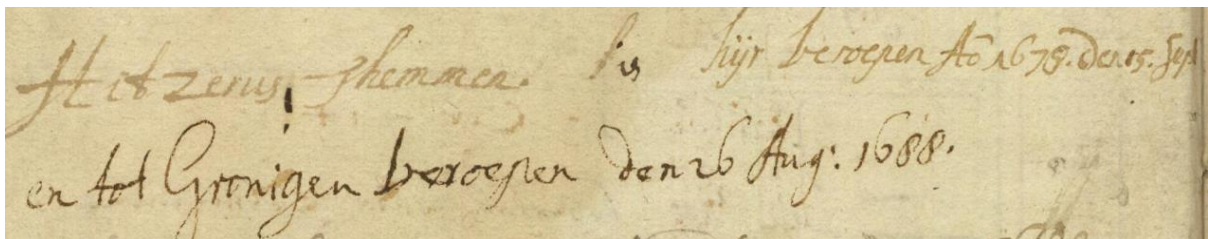 Hitzerus Themmen. is hijr beroepen Ao 1678. Den 15. Sept
en tot Gronigen beroepen den 26 Aug: 1688.